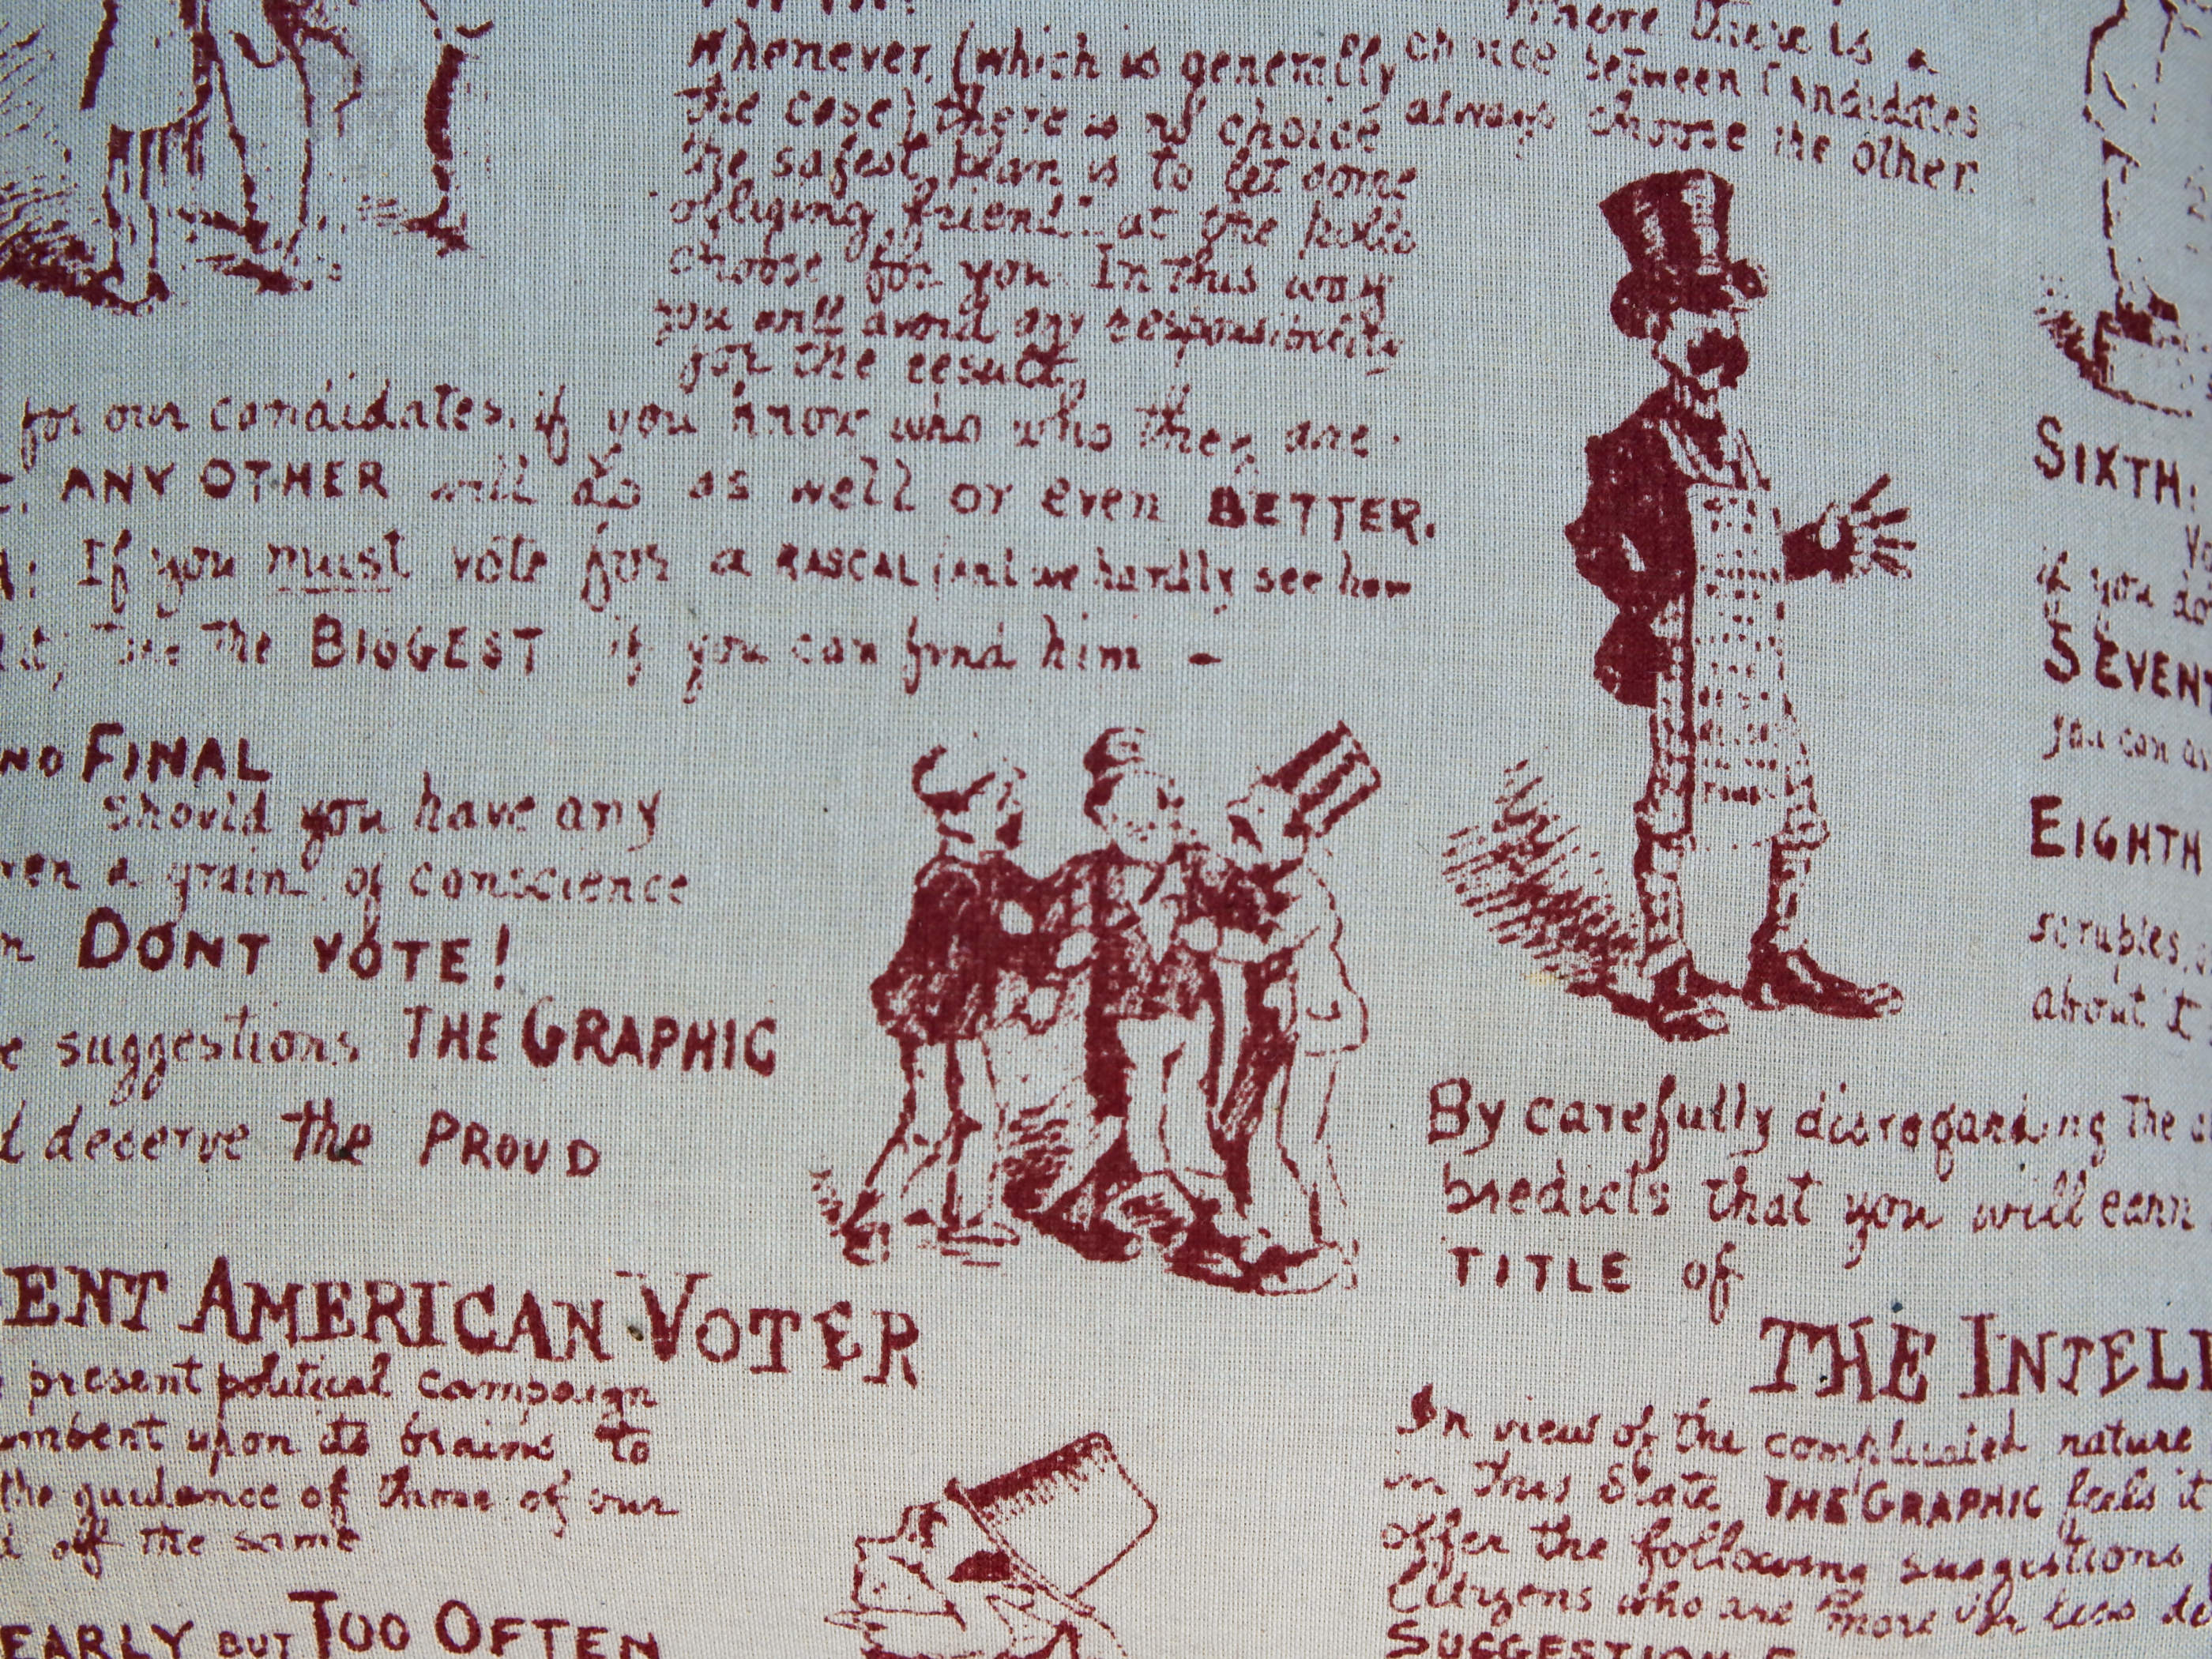 Where there is a
Whenever, (which is generally
choice between Candidates
the case) there is no choice
always choose the other
the safest plan is to let some
obliging friend at the polls
choose for you In this way
you will avoid any responsibility
for the result,
for our candidates, if you know who who they are.
ANY OTHER will do as well or even BETTER.
If you must vote for a RASCAL (and we hardly see how
the BIGGEST if you can find him -
SIXTH:
if you do
SEVENT
you can
EIGHTH
scruples,
about
NO FINAL
should you have any
a grain of conscience
DONT VOTE!
suggestions THE GRAPHIC
deserve the PROUD
ENT AMERICAN VOTER
present political campaign
upon its brains to
the guidance of those of our
of the same
EARLY BUT TOO OFTEN
By carefully disregarding the
predicts that you will earn
TITLE of
THE INTELL
In view of the complicated nature
in this State THE GRAPHIC feels it
offer the following suggestions
Citizens who are more or less
SUGGESTION